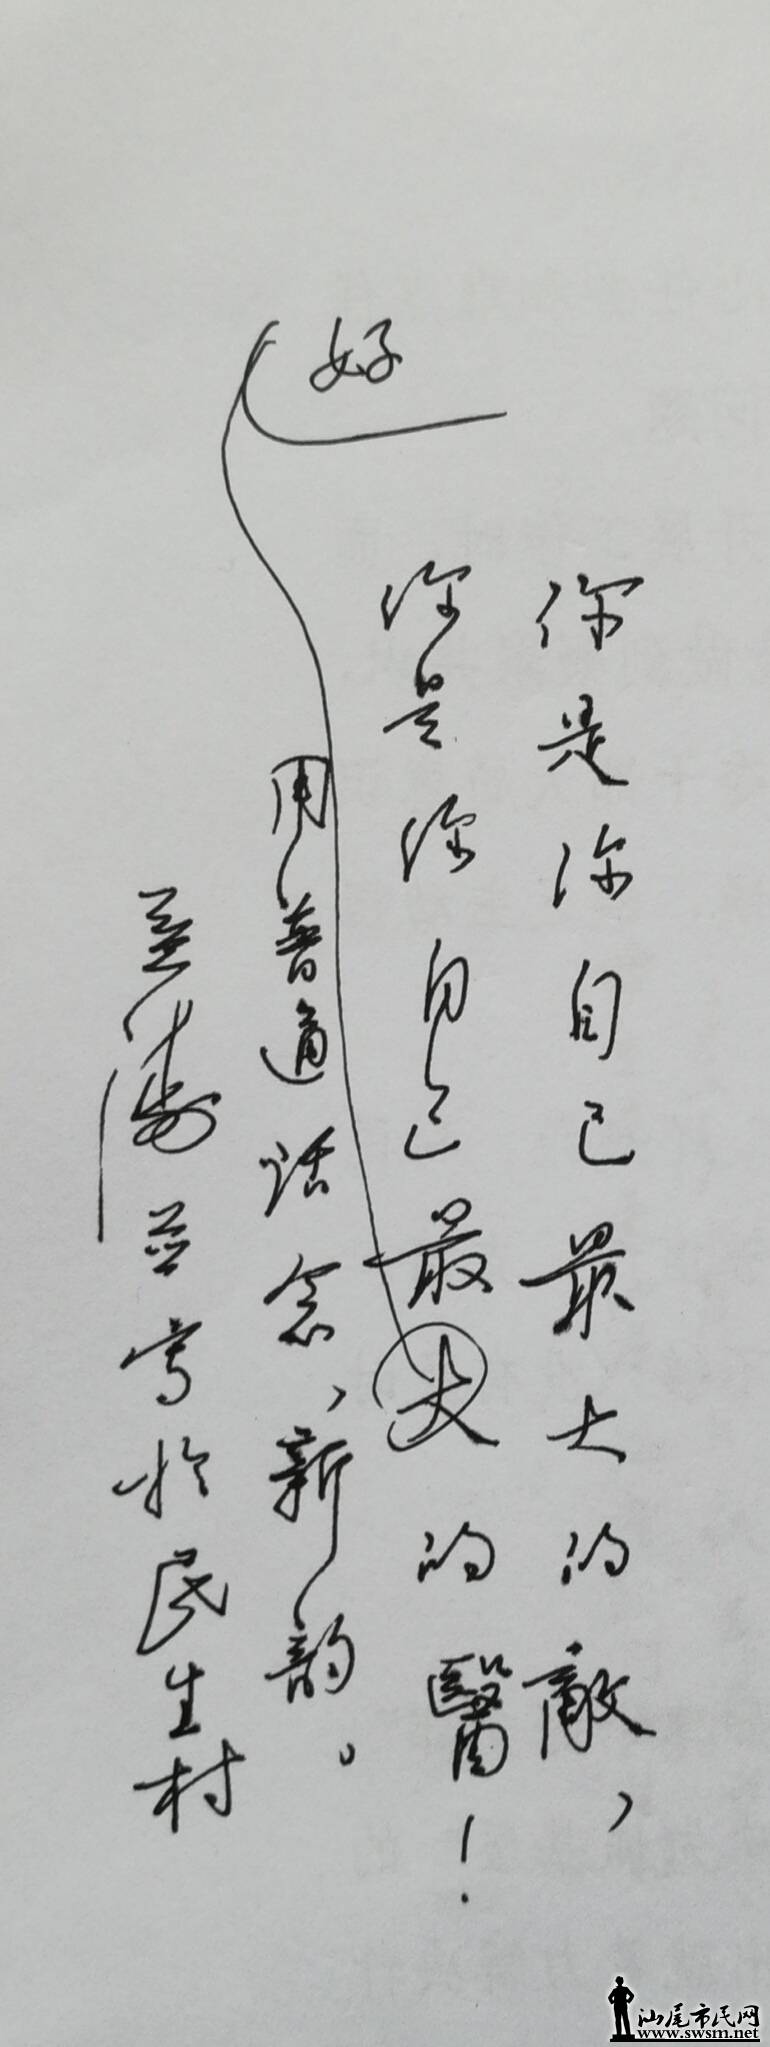 你是你自己最大的敵，
你是你自己最大的醫！
好
用普通话念、新韵。
並寫於民生村
汕尾市民网
www.swsm.net